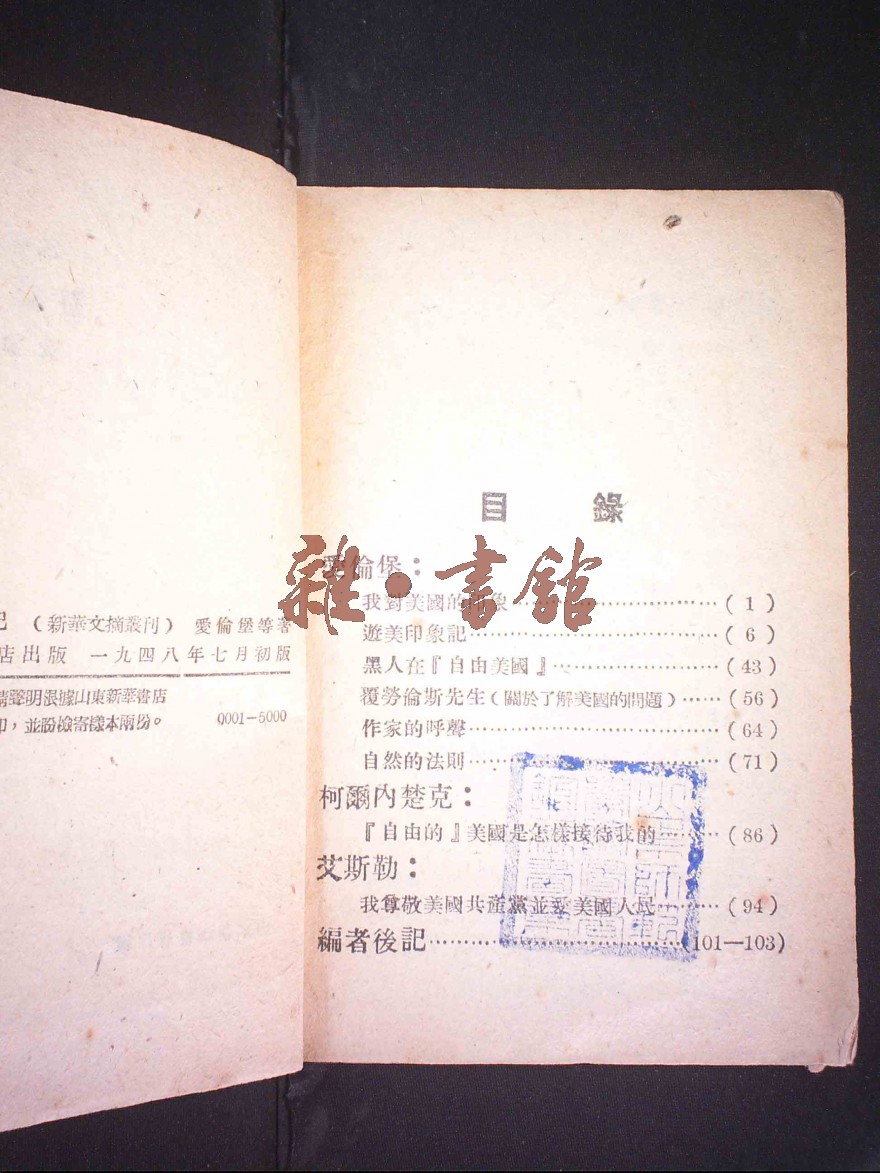 記 （新華文摘叢刊） 愛倫堡等著
店出版 一九四八年七月初版
請聲明根據山東新華書店
印，並盼檢寄樣本兩份。 0001—5000
目 錄
愛倫堡：
我對美國的印象……………………（1）
遊美印象記……………………（6）
黑人在『自由美國』……………………（43）
覆勞倫斯先生（關於了解美國的問題）……（56）
作家的呼聲……………………（64）
自然的法則……………………（71）
柯爾內楚克：
『自由的』美國是怎樣接待我的………（86）
艾斯勒：
我尊敬美國共產黨並愛美國人民………（94）
編者後記……………………(101—103)
雜·書館